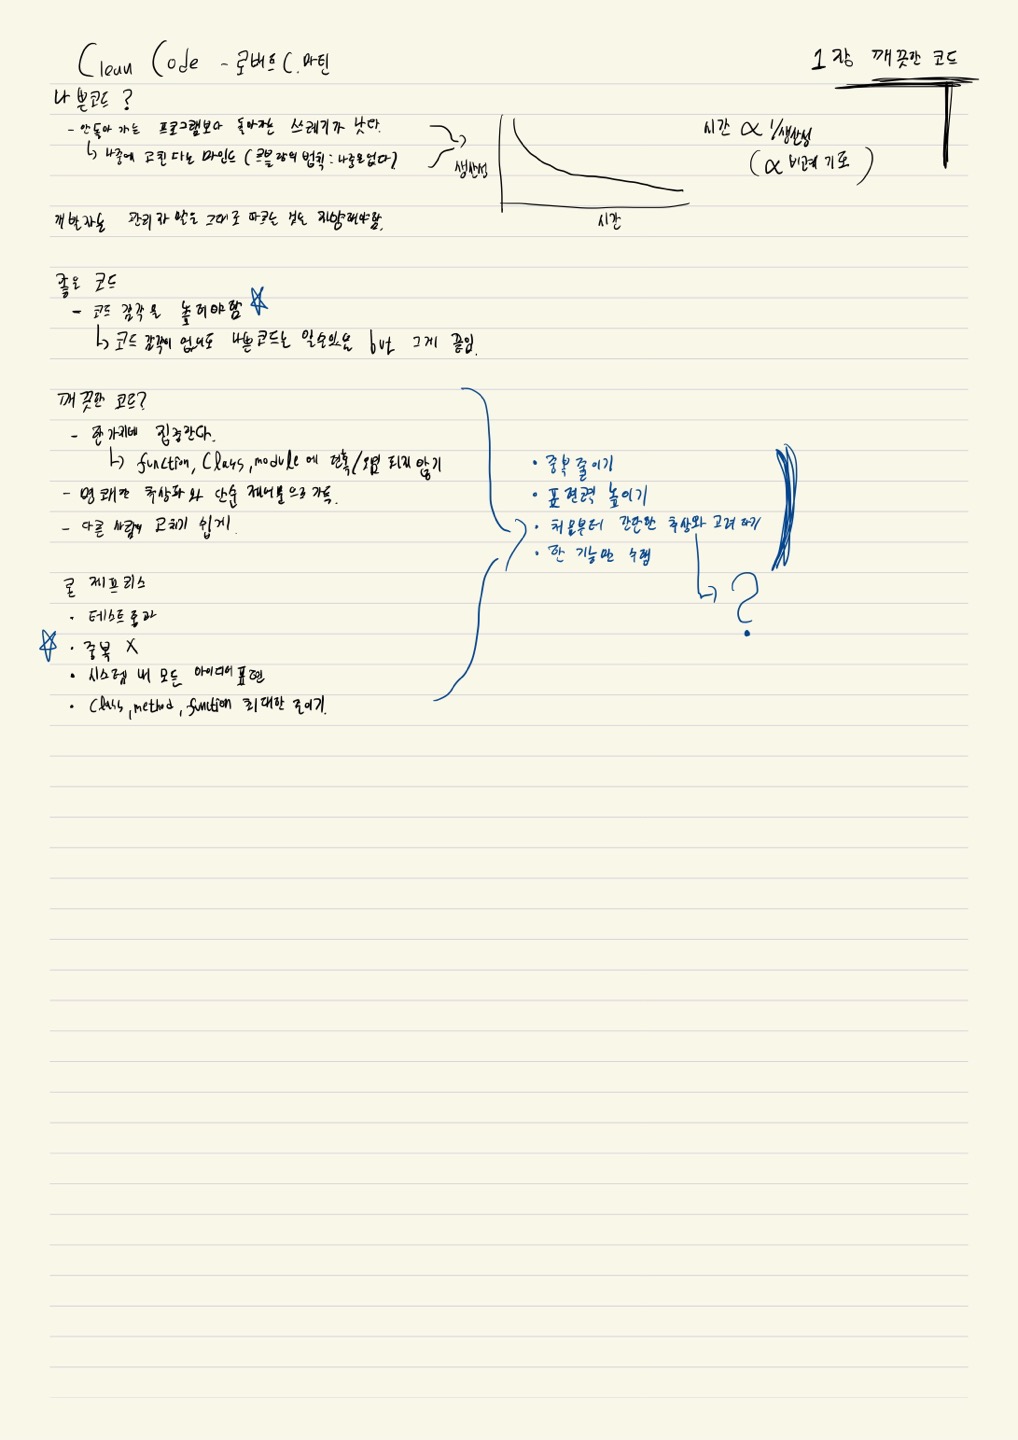 Clean Code - 로버트 C. 마틴
1장 깨끗한 코드
나쁜코드?
- 안돌아 가는 프로그램보다 돌아가는 쓰레기가 낫다.
↳ 나중에 고친다는 마인드 (르블랑의 법칙: 나중은없다)
생산성
시간
시간 ∝ 1/생산성
(∝ 비례 기호)
개발자는 관리자 말을 그대로 따르는 것도 지양해야함.
좋은 코드
- 코드 감각을 높여야함 ☆
↳ 코드 감각이 없어도 나쁜코드는 알수있음 but 그게 끝임.
깨끗한 코드?
- 한가지에 집중한다.
↳ function, Class, module에 현혹/오염 되지 않기
- 명쾌한 추상화와 단순 제어문으로 가득.
- 다른 사람이 고치기 쉽게.
• 중복 줄이기
• 표현력 높이기
• 처음부터 간단한 추상화 고려하기
• 한 기능만 수행
↳ ?
론 제프리스
• 테스트통과
☆ • 중복 X
• 시스템 내 모든 아이디어 표현
• Class, method, function 최대한 줄이기.